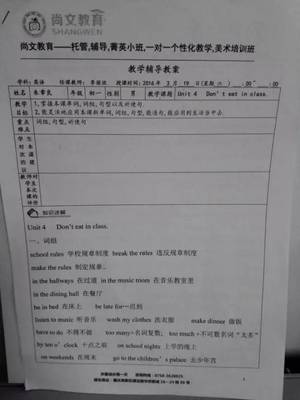 尚文教育
SHANGWEN
尚文教育——托管,辅导,菁英小班,一对一个性化教学,美术培训班
教学辅导教案
学科: 英语 任课教师: 授课时间: 2016 年 3 月 19 日(星期 六)
年级 初一 性别 男 教学课题 Unit 4 Don't eat in class.
教学目标
1,掌握本课单词,词组,句型以及祈使句.
重点难点
词组,句型,祈使句
学生对本次课的建议
教师对学生本次课的评价
知识讲解
Unit 4 Don't eat in class.
一、词组
school rules 学校规章制度 break the rules 违反规章制度
make the rules 制定规章..
in the hallways 在过道 in the music room 在音乐教室里
in the dining hall 在餐厅
be in bed 在床上 be late for=迟到
listen to music 听音乐 wash my clothes 洗衣服 make dinner 做饭
have to do 不得不做 too many+名词复数; too much +不可数名词 "太多"
by ten o'clock 十点之前 on school nights 上学的晚上
on weekends 在周末 go to the children's palace 去少年宫